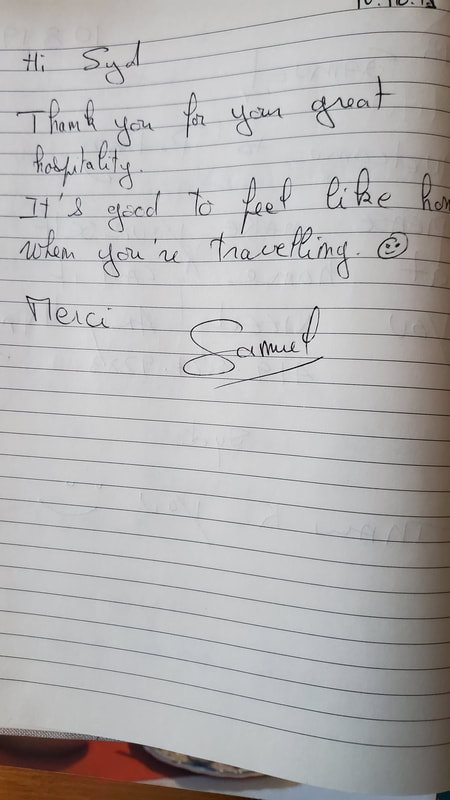 Hi Syd
Thank you for your great
hospitality.
It's good to feel like
when you're travelling.
Merci
Samuel